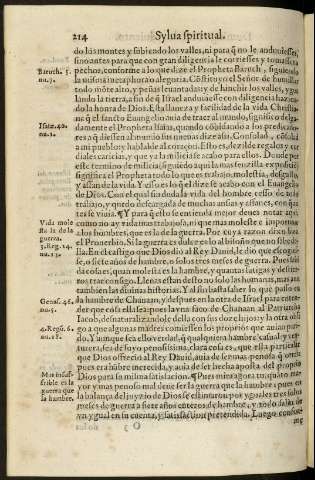 214 Sylua spiritual.
do los montes y subiendo los valles, ni para q̃ no le anduuiesses,
sino antes para que con gran diligencia le corriesses y tomasses a
pechos, conforme a lo que dize el Propheta Baruch, siguiendo
Baruch. 5.
nu. 7.
la misma metaphora o alegoria. Cõstituyo el Señor de humillar
todo mõte alto, y peñas leuantadas, y de hinchir los valles, ygua
lando la tierra, a fin de q̃ Israel anduuiesse con diligencia hazien
do la honra de Dios. Esta llaneza y facilidad de la vida Christia-
na q̃ el sancto Euangelio auia de traer al mundo, significo delga-
Isai. 40.
nu. 1.
damente el Propheta Isaias, quando cõbidando a los predicado-
res a q̃ diessen al mundo sus nueuas dize assi. Consolad, cõsolad
a mi pueblo y hablalde al coraçon. Esto es, dezilde regalos y cor
diales caricias, y que ya la malicia se acabo para ellos. Donde por
este termino de milicia
significa el Propheta todo lo que es trabajo, molestia, desgusto,
y assan de la vida. Y esso es lo q̃ dize se acabo con el Euangelio
de Dios. Con el qual sin duda la vida del hombre cesso de ser
trabajo, y quedo descargada de muchas ansias y afanes, con que
antes se viuia. ¶ Y para q̃ esto se entienda mejor deues notar aqui
Vida mole
sta la de la
guerra.
como no ay vida mas trabajosa, ni que mas moleste e importune
a los hombres, que es la de la guerra. Por cuya razon dixo bien
el Prouerbio. Si la guerra es dulce es lo al bisoño que no sabe de
2. Reg. 24.
nu. 13.
lla. En el castigo que Dios dio al Rey Dauid, le dio que escogies-
se, o siete años de hambre, o solos tres meses de guerra. Pues bien
sabes, quan molesta es la hambre, y quantas fatigas y desastres
trae consigo. Llenas estan desto no solo las humanas, mas aun
tambien las diuinas historias. Y al fin basta saber lo que passo en
Genes. 46.
nu. 5.
la hambre de Chanaan, y despues en la otra de Israel para enten-
der que cosa ella sea; pues la vna saco de Chanaan al Patriarcha
Iacob, desnaturalizandole della con sus hijos, y la otra obli
4. Regũ. 6.
nu. 28.
go a que algunas madres comiessen los proprios que auian pari-
do. Y aunque sea esso verdad, q̃ qualquiera hambre casual y ven-
turera, sea de suyo penosissima, clara cosa es, que ella particular
que Dios ofrecio al Rey Dauid, auia de ser mas penosa q̃ otra,
pues era hambre merecida, y auia de ser hecha aposta del proprio
Mas insuf-
frible es la
guerra que
la hambre.
Dios para su misma satisfacion. ¶ Pues mira agora tu, quãto ma-
yor y mas penoso mal deue ser la guerra que la hambre; pues en
la balança del juyzio de Dios se estimaron por yguales tres solos
meses de guerra a siete años enteros de hambre, y todo salia de
vn ygual en la cuenta, y satisfacion pretendida. Luego cosa es